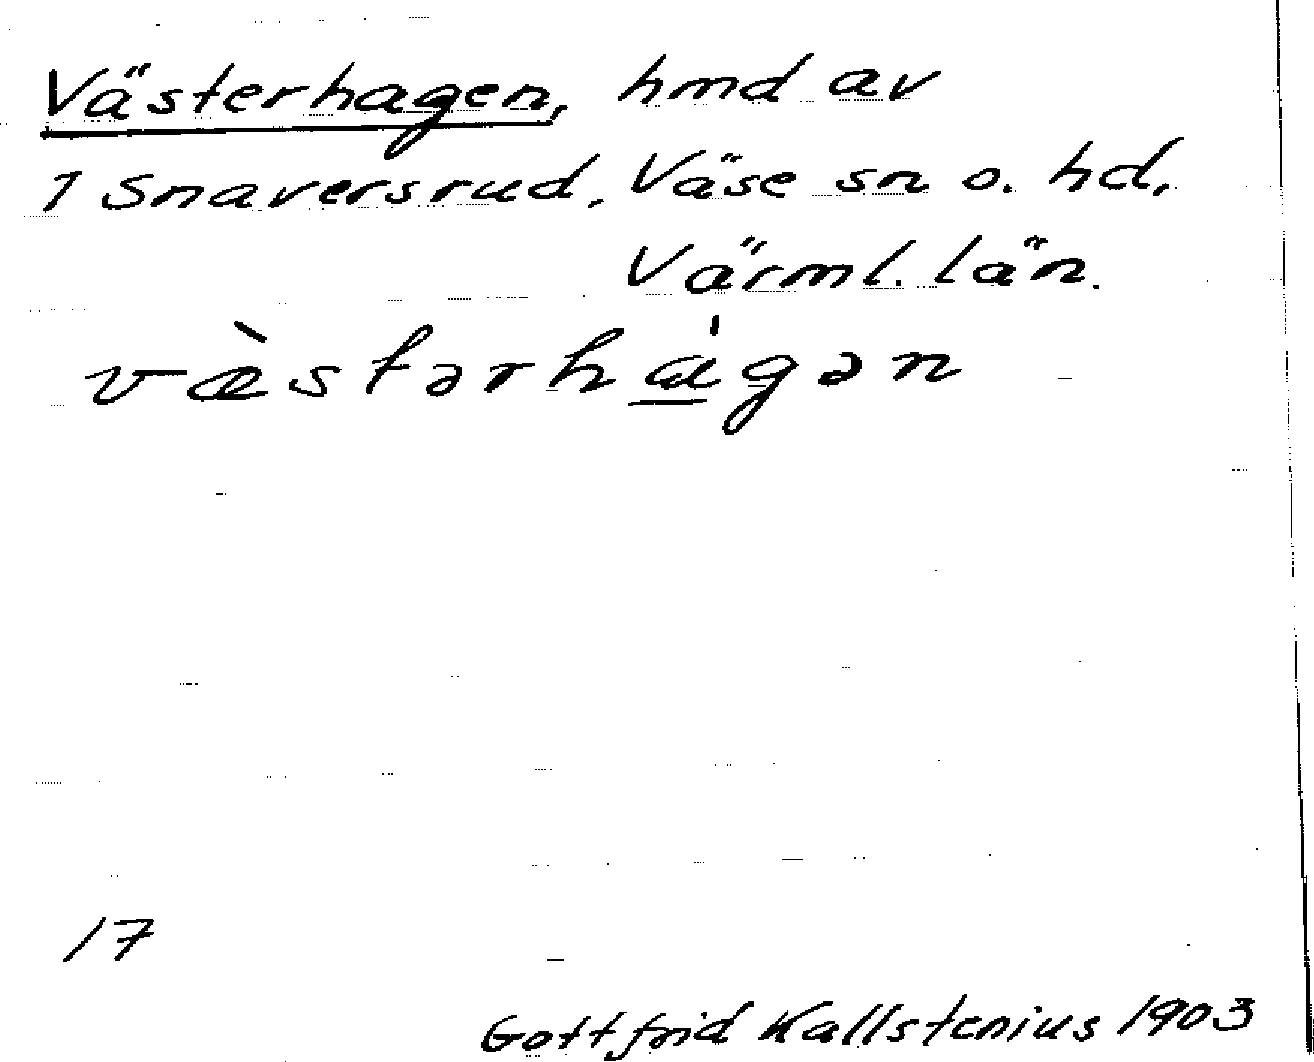 Västerhagen, hmd av
1 Snaversrud, Väse sn o. hd,
Värml. län.
væ̀stərha̱̍gən
17
Gottfrid Kallstenius 1903